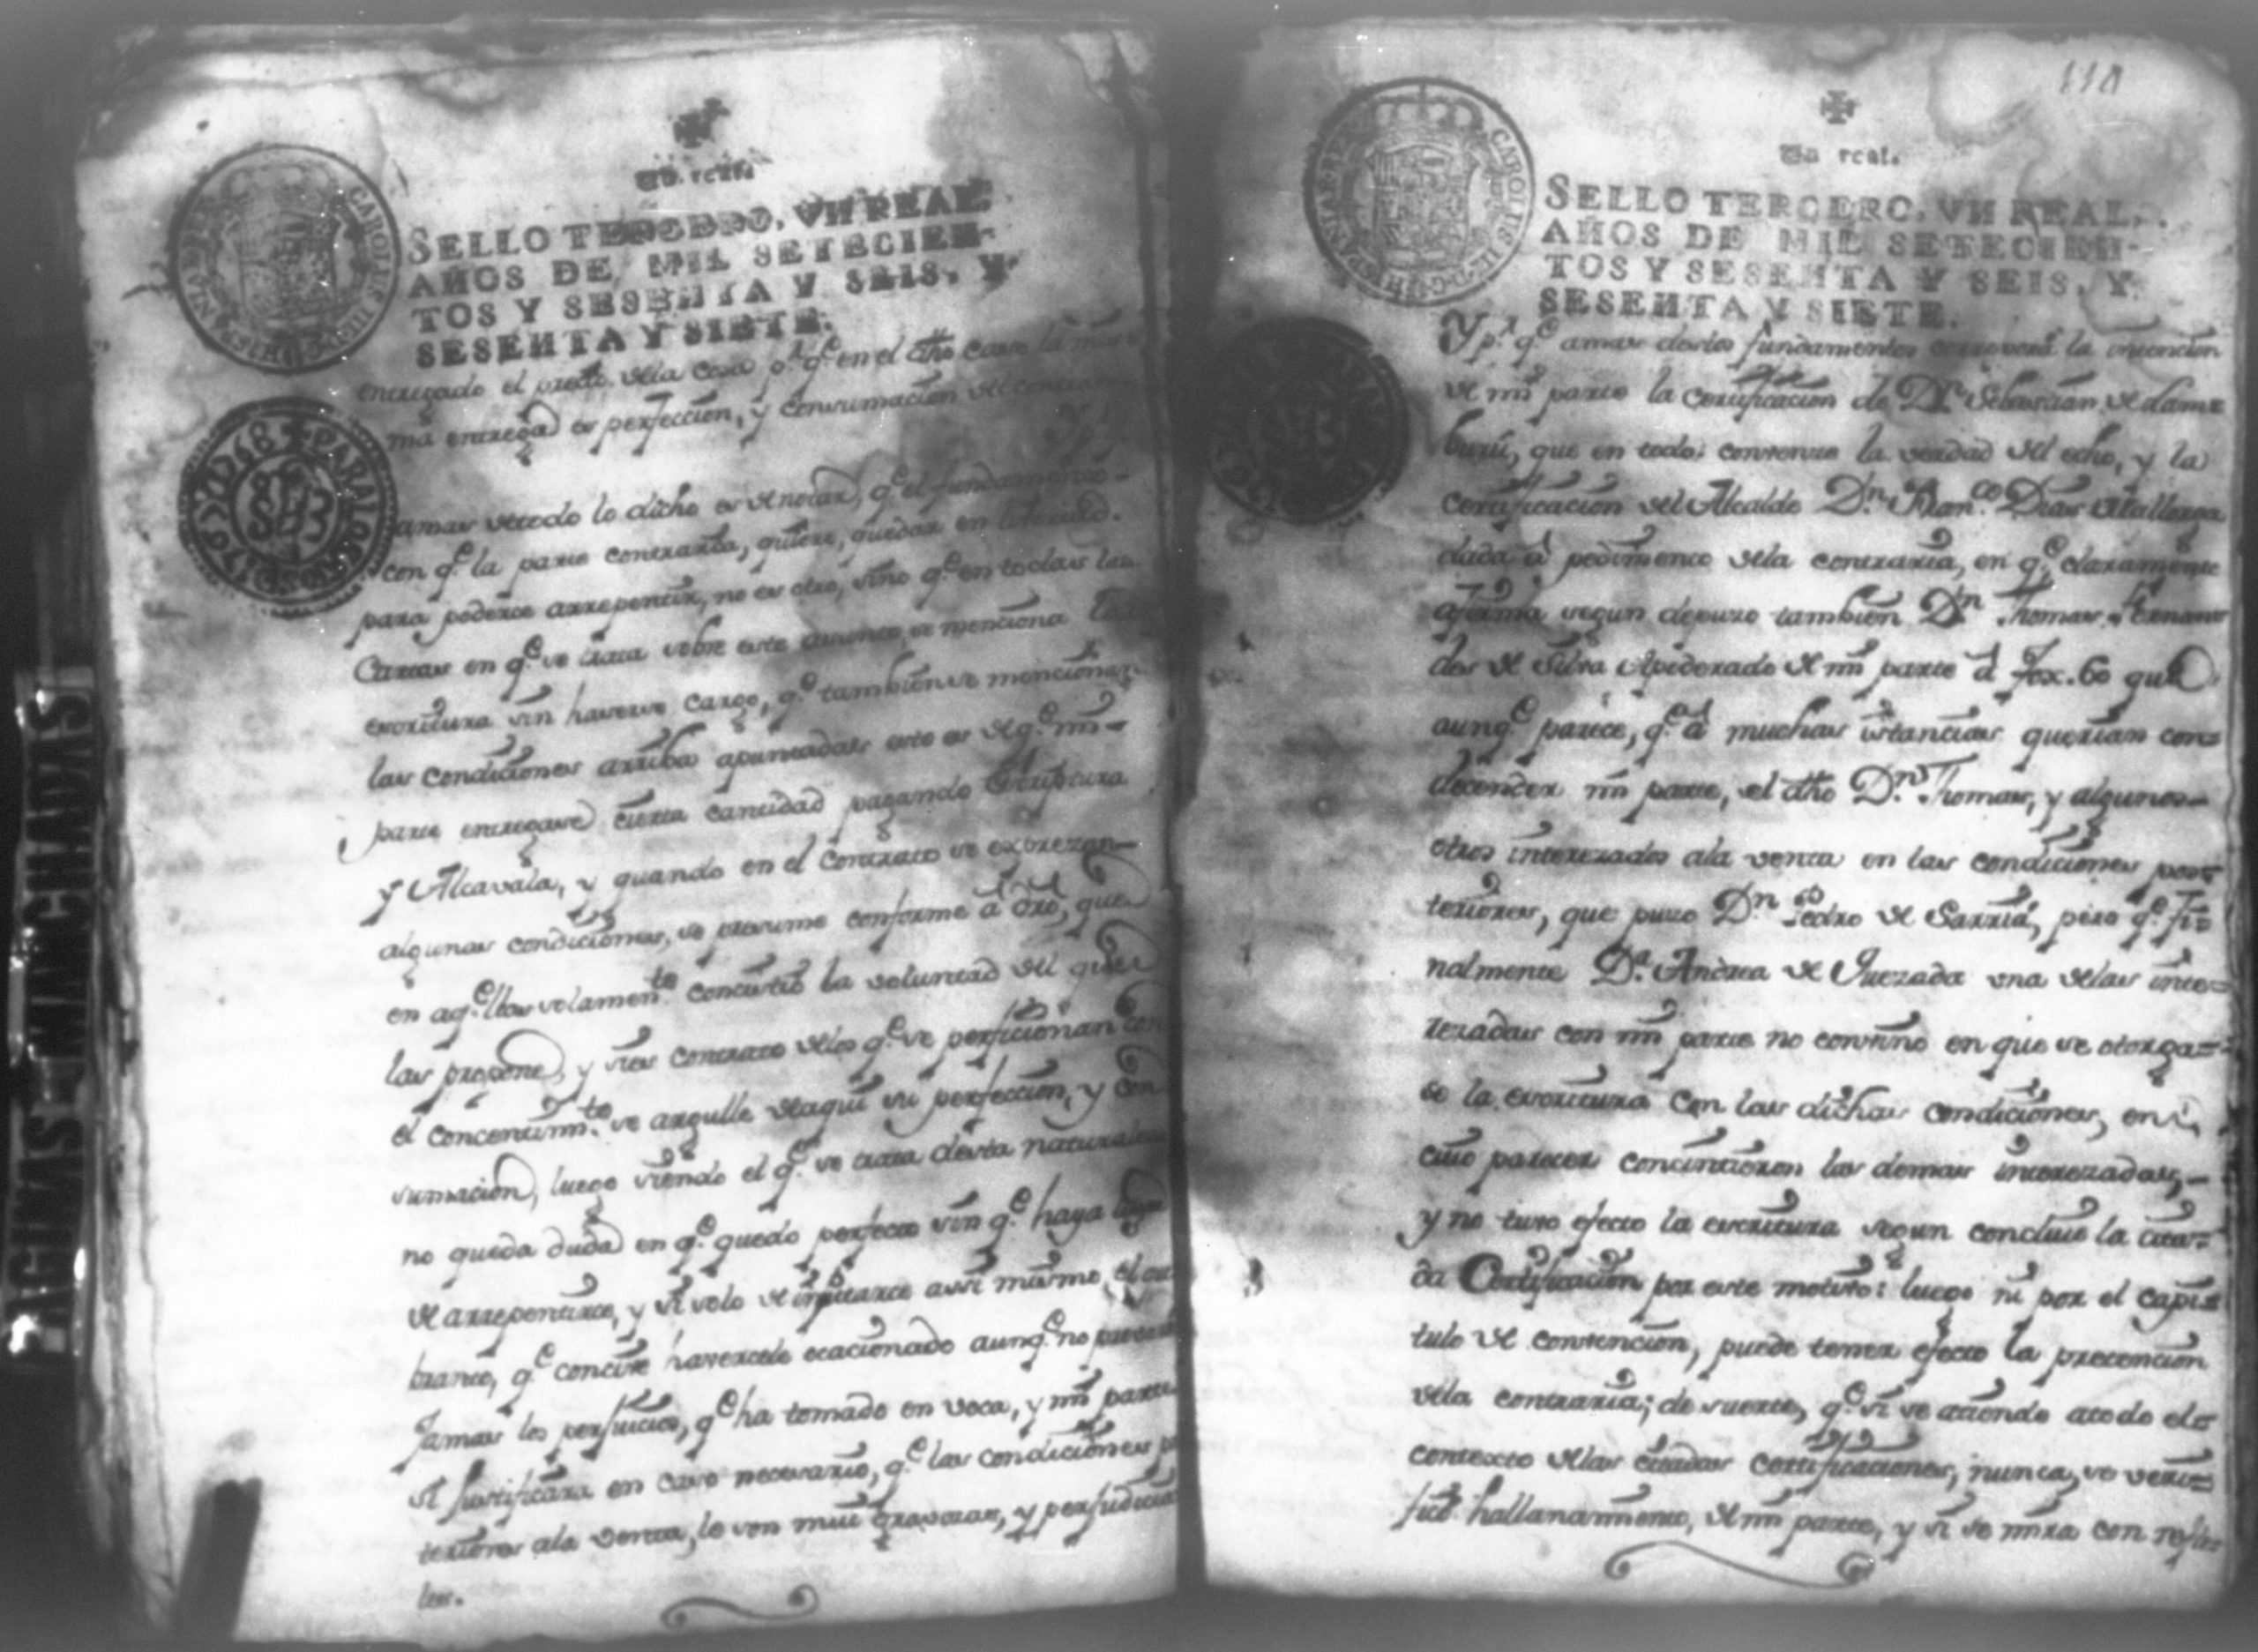 PAGINAS MANCHADAS
Un real
SELLO TERCERO, VN REAL,
AÑOS DE MIL SETECIEN-
TOS Y SESENTA Y SEIS, Y
SESENTA Y SIETE.
CAROLUS III
1768 PARA LOS
1769
entregado el precio dela Cosa p.r q.e en el dho caso la mis
ma entrega es perfeccion, y consumacion del contrato
amas detodo lo dicho es de notar, q.e el fundamento
con q.e la parte contraria, quiere, quedar en livertad.
para poderse arrepentir, no es otro, sino q.e en todas las
Cartas en q.e se trata sobre este asunto, se menciona
escritura sin haverse cargo, q.e tambien se mencionan
las condiciones arriba apuntadas esto es de q.e mi
parte entregase cierta cantidad pagando Scriptura
y Alcavala, y quando en el contrato se expresan
algunas condiciones, se presume conforme à dro, que
en aq.ellas solamen.te concistio la voluntad del que
las propone, y si es contrato delos q.e se perficionan con
el concentim.to se argulle deaqui su perfeccion, y con
sumacion, luego siendo el q.e se trata desta naturaleza
no queda duda en q.e quedo perfecto sin q.e haya lugar
de arrepentirse, y si solo de imputarse assi mismo, el
brante, q.e concive haversele ocacionado aunq.e no
Jamas los perjuicios, q.e ha tomado en voca, y mi parte
si justificara en caso necesario, q.e las condiciones pos
teriores ala venta, le son mui gravosas, y perjudicia
les.
118
Un real.
SELLO TERCERO, VN REAL,
AÑOS DE MIL SETECIEN-
TOS Y SESENTA Y SEIS, Y
SESENTA Y SIETE.
CAROLUS III
Y p.r q.e amas destos fundamentos la intencion
de mi parte la certificacion de D.n Sebastian de lam
burú, que en todo convence la verdad del echo, y la
certificacion del Alcalde D.n Fran.co Dias
dada à pedimento dela contraria, en q.e claramente
afirma segun depuso tambien D.n Thomas Fernan
des de Silva Apoderado de mi parte à fox. 60 que
aunq.e parece, q.e à muchas istancias querian con=
decender mi parte, el dho D.n Thomas, y algunos
otros interezados ala venta en las condiciones pos=
teriores, que puso D.n Pedro de Sarria, pero q.e fi=
nalmente D.a Andrea de Quezada una delas inte=
rezadas con mi parte no convino en que se otorga=
se la escritura con las dichas condiciones, en
cuio parecer concintieron las demas interezadas,
y no tuvo efecto la escritura segun concluie la cita=
da Certificacion por este motivo: luego ni por el capi=
tulo de convencion, puede tener efecto la pretencion
dela contraria; de suerte, q.e si se atiende atodo el=
contexto delas citadas certificaciones, nunca, se veri=
ficó hallanamiento, de mi parte, y si se mira con refle